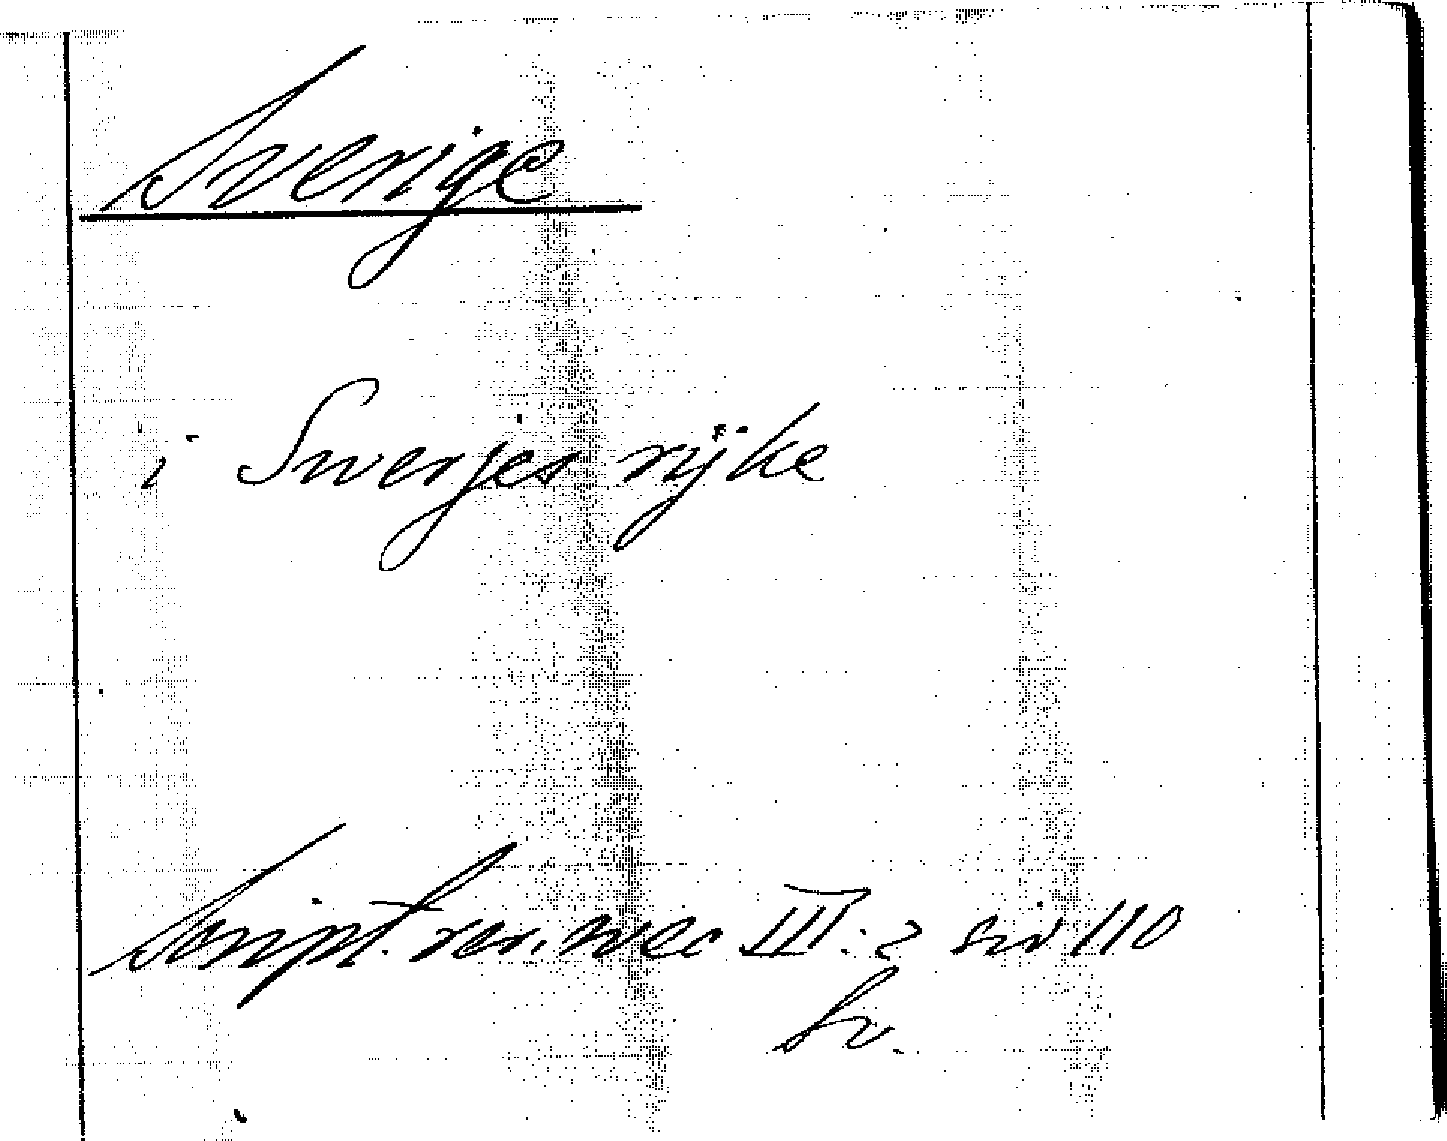 Sverige
i Swerjes rijke
Script. rer. svec III: 2 sid 110
Sv.